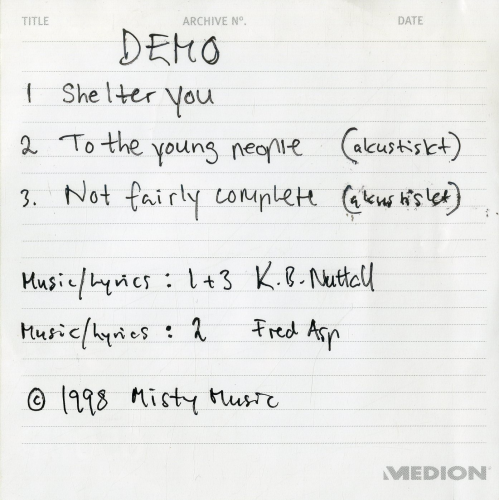 TITLE ARCHIVE Nº. DATE
DEMO
1 Shelter You
2 To the young people (akustiskt)
3. Not fairly complete (akustiskt)
Music/Lyrics : 1+3 K.B. Nuttall
Music/Lyrics : 2 Fred Asp
© 1998 Misty Music
MEDION®